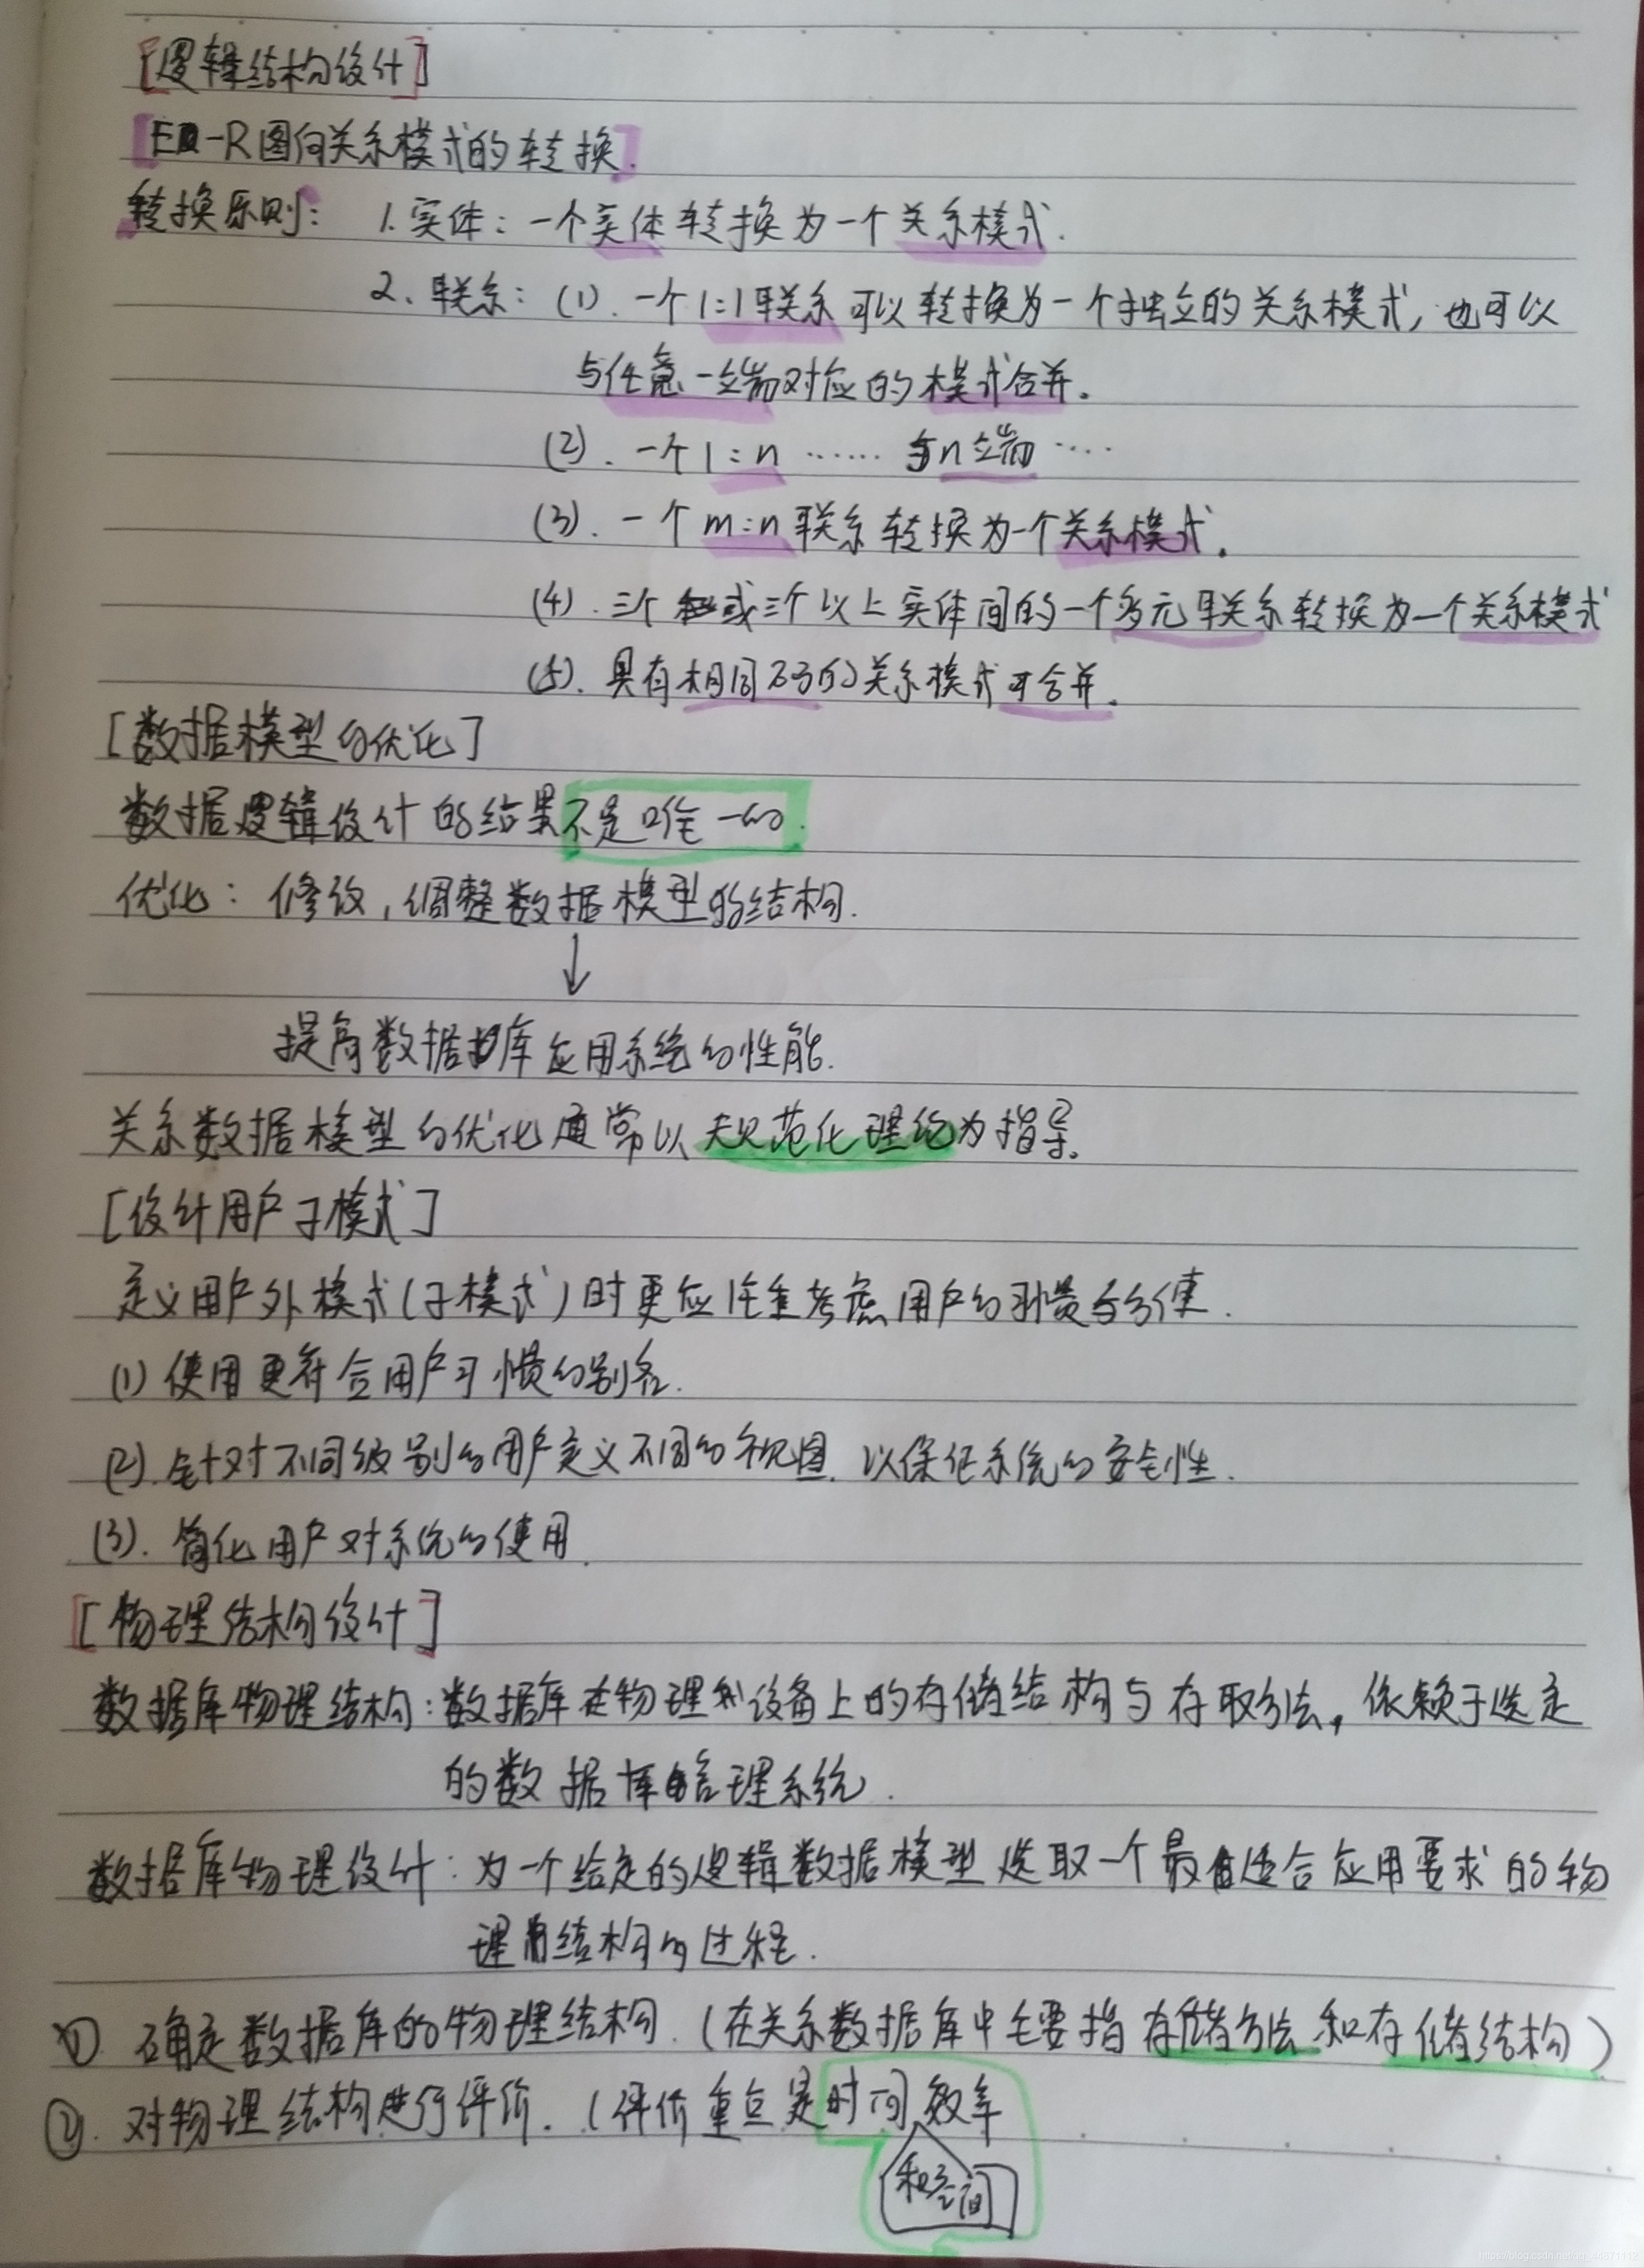 [逻辑结构设计]
[E-R图向关系模式的转换].
转换原则: 1.实体:一个实体转换为一个关系模式.
2、联系:(1).一个1:1联系可以转换为一个独立的关系模式,也可以
与任意一端对应的模式合并。
(2).一个1:n……与n端····
(3).一个m:n联系转换为一个关系模式.
(4).三个或三个以上实体间的一个多元联系转换为一个关系模式
(5).具有相同码的关系模式可合并.
[数据模型的优化]
数据逻辑设计的结果不是唯一的.
优化:修改,调整数据模型的结构.
↓
提高数据库应用系统的性能.
关系数据模型的优化通常以规范化理论为指导。
[设计用户子模式]
定义用户外模式(子模式)时更应注重考虑用户的习惯与方便.
(1)使用更符合用户习惯的别名.
(2).针对不同级别的用户定义不同的视图.以保证系统的安全性.
(3).简化用户对系统的使用.
[物理结构设计]
数据库物理结构:数据库在物理设备上的存储结构与存取方法,依赖于选定
的数据库管理系统.
数据库物理设计:为一个给定的逻辑数据模型选取一个最适合应用要求的物
理结构的过程.
① 确定数据库的物理结构.(在关系数据库中主要指存储方法和存储结构)
②.对物理结构进行评价.(评价重点是时间效率
和空间